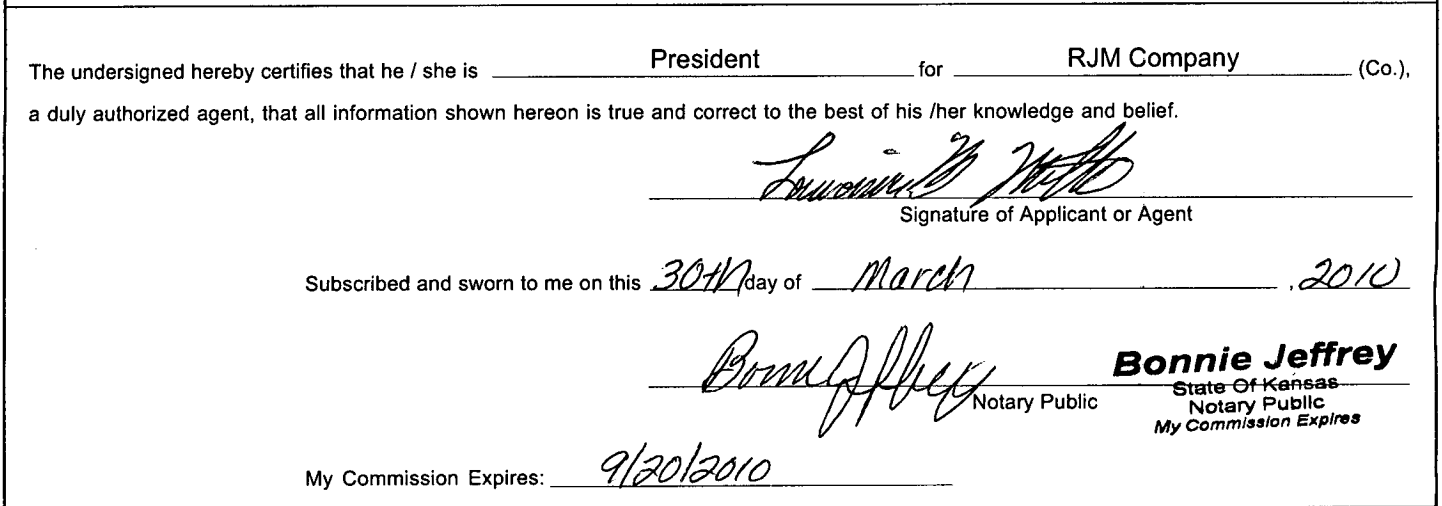 The undersigned hereby certifies that he / she is President for RJM Company (Co.),
a duly authorized agent, that all information shown hereon is true and correct to the best of his /her knowledge and belief.
Signature of Applicant or Agent
Subscribed and sworn to me on this 30th day of March , 2010
Bonnie Jeffrey
Notary Public
Bonnie Jeffrey
State Of Kansas
Notary Public
My Commission Expires
My Commission Expires: 9/20/2010